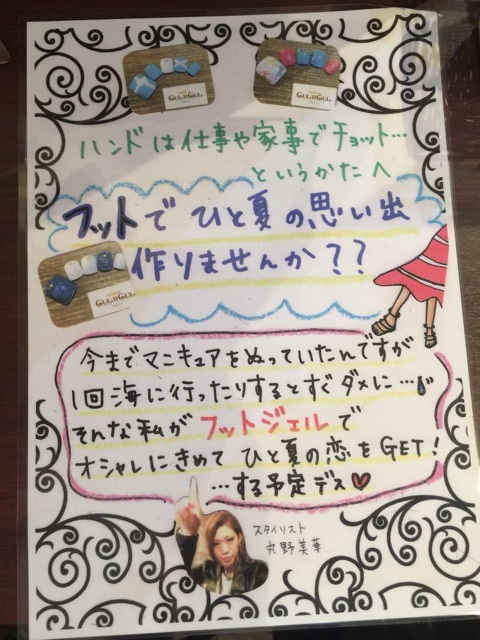 GUL II GUL
GUL II GUL
ハンドは仕事や家事でチョット…
というかたへ
フットで ひと夏の思い出
作りませんか??
GUL II GUL
今までマニキュアをぬっていたんですが
1回海に行ったりするとすぐダメに…
そんな私がフットジェルで
オシャレにきめて ひと夏の恋をGET!
…する予定デス♥
スタイリスト
丸野美華